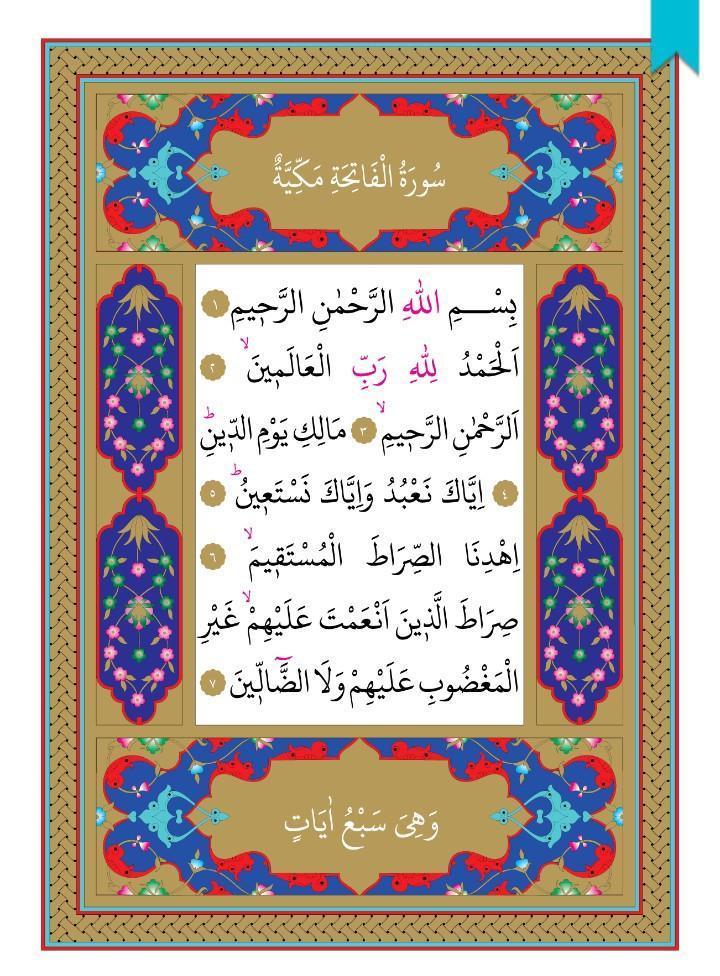 سُورَةُ الْفَاتِحَةِ مَكِّيَّةٌ
بِسْــمِ اللّٰهِ الرَّحْمٰنِ الرَّحٖيمِ ١
اَلْحَمْدُ لِلّٰهِ رَبِّ الْعَالَمٖينَۙ ٢
اَلرَّحْمٰنِ الرَّحٖيمِۙ ٣ مَالِكِ يَوْمِ الدّٖينِۜ
٤ اِيَّاكَ نَعْبُدُ وَاِيَّاكَ نَسْتَعٖينُۜ ٥
اِهْدِنَا الصِّرَاطَ الْمُسْتَقٖيمَۙ ٦
صِرَاطَ الَّذٖينَ اَنْعَمْتَ عَلَيْهِمْۙ غَيْرِ
الْمَغْضُوبِ عَلَيْهِمْ وَلَا الضَّٓالّٖينَ ٧
وَهِىَ سَبْعُ اٰيَاتٍ